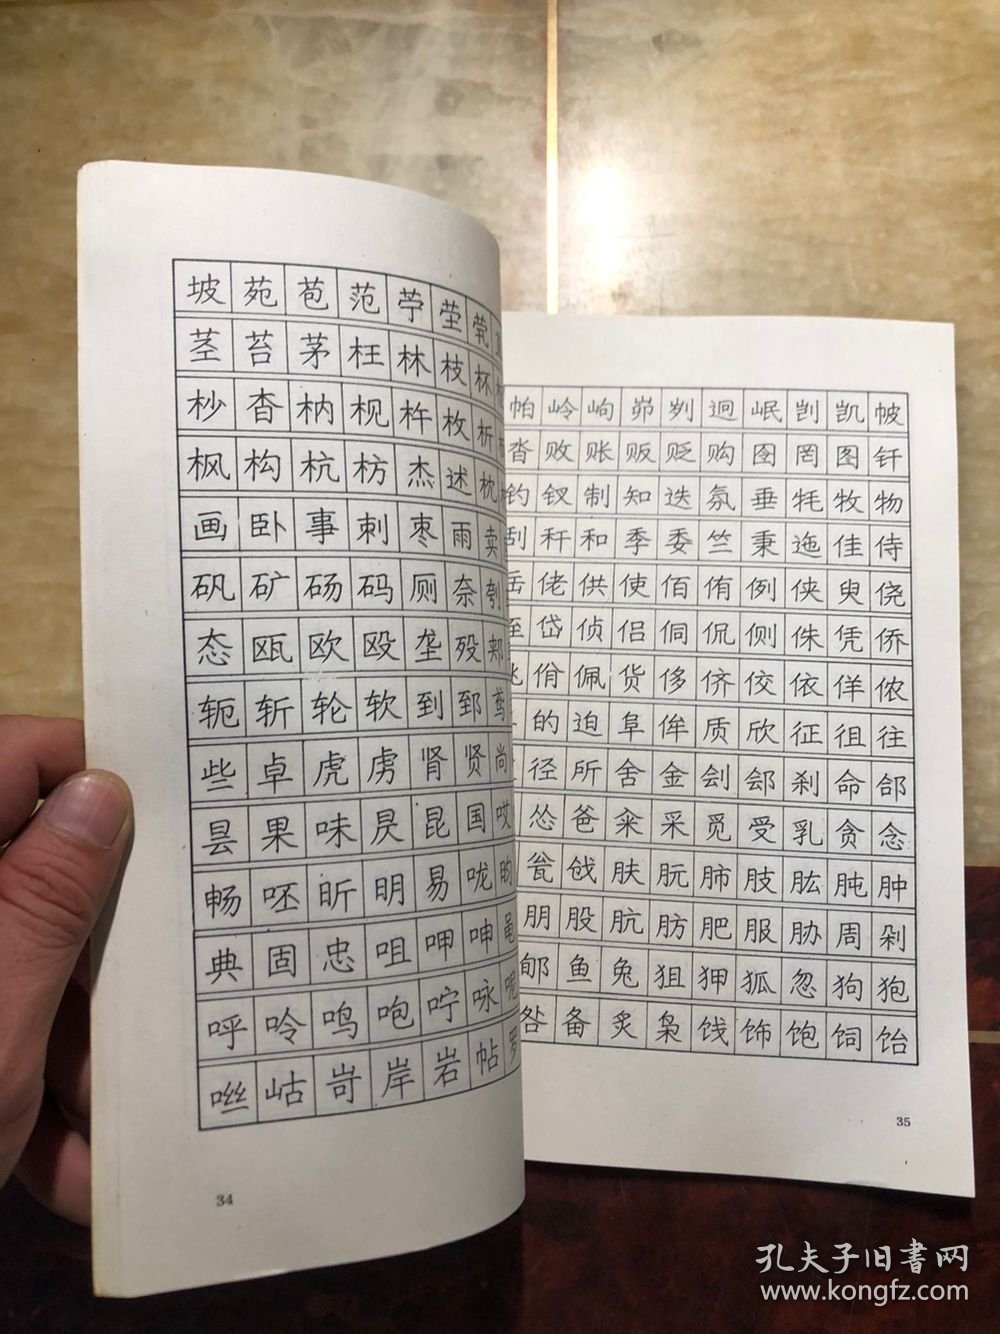 坡苑苞范苧茔茕
茎苔茅枉林枝杯
杪杳枘枧杵枚析
枫构杭枋杰述枕
画卧事刺枣雨卖
矾矿砀码厕奈刳
态瓯欧殴垄殁郏
轭斩轮软到郅鸢
些卓虎虏肾贤尚
昙果味昃昆国哎
畅呸昕明易咙昀
典固忠咀呷呻黾
呼呤鸣咆咛咏呢
咝岵岢岸岩帖罗
34
帕岭岣峁刿迥岷剀凯帔
沓败账贩贬购囹罔图钎
钓钗制知迭氛垂牦牧物
刮秆和季委竺秉迤佳侍
岳佬供使佰侑例侠臾侥
侄岱侦侣侗侃侧侏凭侨
佻佾佩货侈侪佼依佯侬
的迫阜侔质欣征徂往
径所舍金刽郐刹命郃
怂爸籴采觅受乳贪念
瓮戗肤朊肺肢肱肫肿
朋股肮肪肥服胁周剁
郇鱼兔狙狎狐忽狗狍
咎备炙枭饯饰饱饲饴
35
孔夫子旧書网
www.kongfz.com